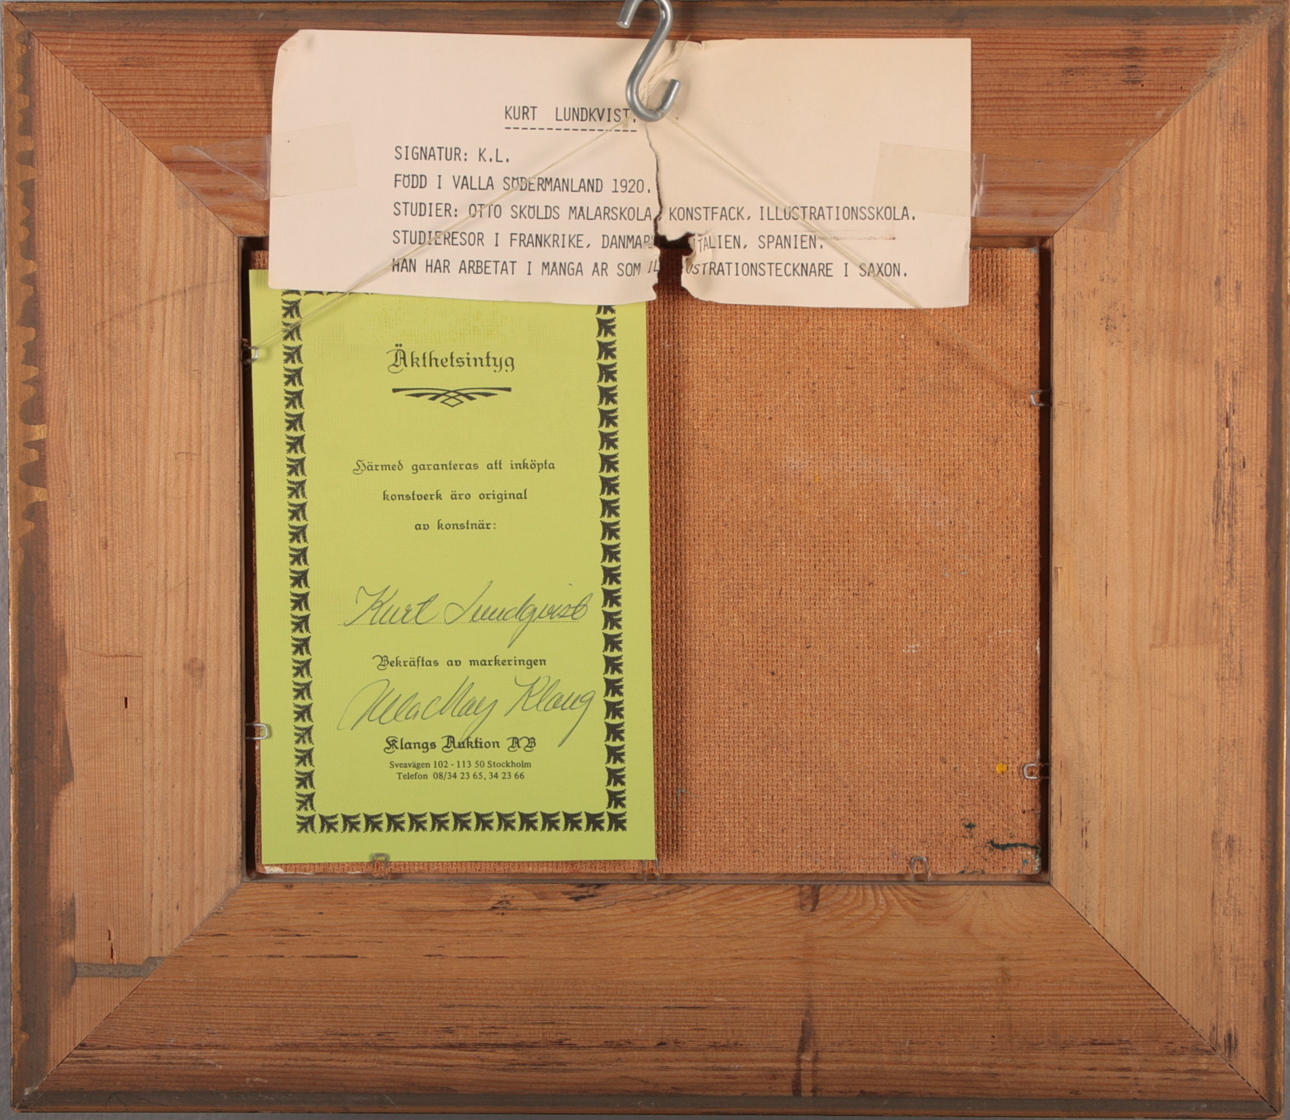 KURT LUNDKVIST.
SIGNATUR: K.L.
FÖDD I VALLA SÖDERMANLAND 1920.
STUDIER: OTTO SKÖLDS MALARSKOLA, KONSTFACK, ILLUSTRATIONSSKOLA.
STUDIERESOR I FRANKRIKE, DANMAR TALIEN, SPANIEN.
HAN HAR ARBETAT I MANGA AR SOM IL USTRATIONSTECKNARE I SAXON.
Äkthetsintyg
Härmed garanteras att inköpta
konstverk äro original
av konstnär:
Kurt Lundqvist
Bekräftas av markeringen
Ulla May Klang
Klangs Auktion AB
Sveavägen 102 - 113 50 Stockholm
Telefon 08/34 23 65, 34 23 66